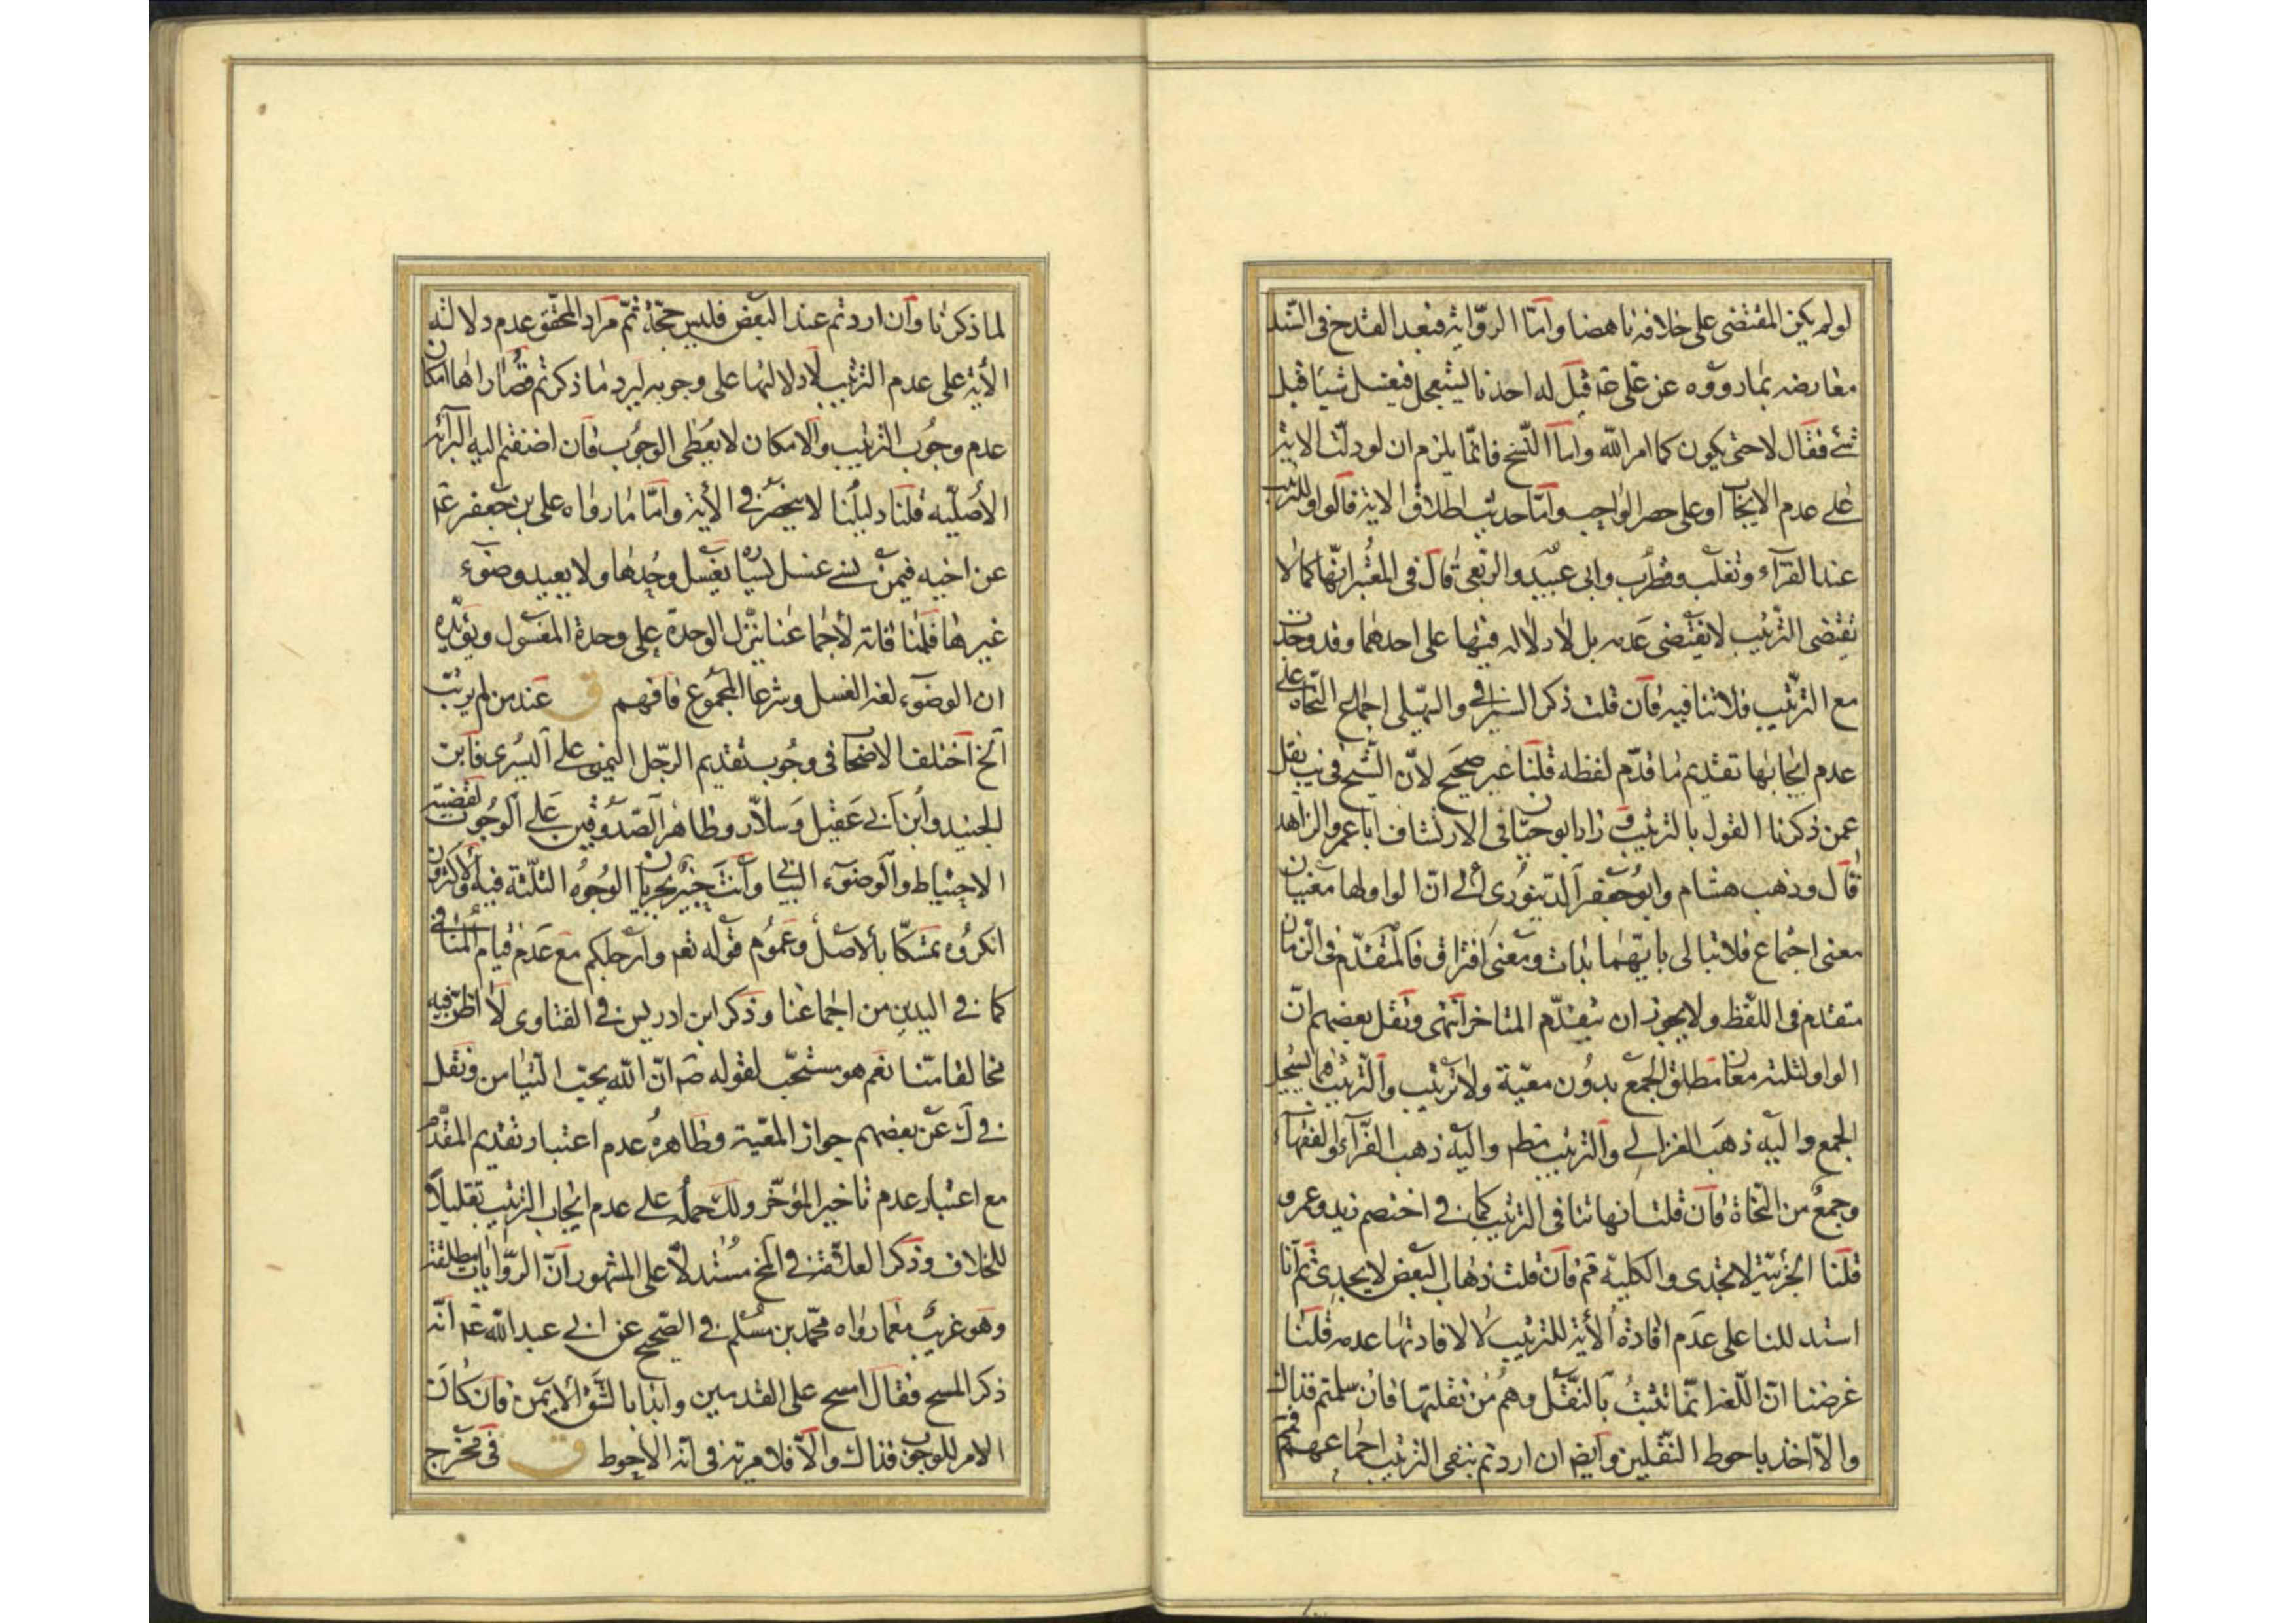 لو لم يكن المقتضى على خلافه ناهضا وامّا الروّاية فبعد القدح فى السّند
معارضه بمارووه عن علىّ عۤ قيل له احدنا يستعجل فيغسل شيئا قبل
شئ فقال لا حتى يكون كما امر الله وامّا النّسخ فانّما يلزم ان لو دلّت الاية
على عدم الايجاب او على حصر الواجب وامّا حديث اطلاق الاية قالوا وللترتيب
عند الفرّاء وثعلب وقطرب وابى عبيد والربعى قال فى المعتبر انّها كما لا
يقتضى الترتيب لا يقتضى عدمه بل لا دلاله فيها على احدهما وقد وجدت
مع الترتيب فلا تنافيه فان قلت ذكر السيرافى والسّهيلى اجماع النّحاة على
عدم ايجابها تقديم ما قدّم لفظه قلنا غير صحيح لانّ الشّيخ فى يب نقل
عمن ذكرنا القول بالترتيب وزاد ابو حيّان فى الارتشاف ابا عمر والزاهد
قال وذهب هشام وابو جعفر الدّينورى الى انّ الواو لها معنيان
معنى اجتماع فلا تبالى بايّهما بدات ومعنى افتراق فالمتقدّم فى الزمان
متقدم فى اللفظ ولا يجوز ان يتقدّم المتاخر انتهى ونقل بعضهم انّ
الواو لثلثة معان مطلق الجمع بدون معيّة ولا ترتيب والترتيب فيما يستحيل
الجمع واليه ذهب الغزالى والترتيب مطم واليه ذهب الفرّاء والفقهاء
وجمع من النّحاة فان قلت انها تنافى الترتيب كما فى اختصم زيد وعمرو
قلنا الجزئيّة لا تجدى والكليه ثم فان قلت ذهاب البعض لا يجدى ثم انا
استدللنا على عدم افادة الأية للترتيب لا لافادتها عدمه قلنا
غرضنا انّ اللّغة انّما تثبت بالنقل وهم من نقلتها فان سلمتم فذاك
والاّ اخذ باحوط النّقلين وايضا ان اردتم بنفى الترتيب اجماعهم ثم
لما ذكرنا وان اردتم عند البعض فليس حجّة ثمّ مراد المحقّق عدم دلالة
الأية على عدم الترتيب لا دلالتها على وجوبه ليرد ما ذكرتم قصاراها امكان
عدم وجوب الترتيب والامكان لا يعطى الوجوب فان اضفتم اليه البرائة
الأصليّه قلنا دليلنا لا ينحصر فى الأية وامّا ما رواه على بن جعفر عۤ
عن اخيه فيمن نسى غسل يساره يغسل وحدها ولا يعيد وضوء
غيرها قلنا قاته لأجماعنا ينزّل الوحدة على وحدة المغسول ويؤيّده
ان الوضوء لغة الغسل وشرعا المجموع فافهم ق عند من لم يرتب
الخ اختلف الاصحاب فى وجوب تقديم الرّجل اليمنى على اليسرى فابن
الجنيد وابن ابى عقيل وسلاّر وظاهر الصّدوقين على الوجوب لقضيّة
الاحتياط والوضوء البيانى وانت خبير بجريان الوجوه الثلثة فيه والاكثرون
انكروه تمسّكا بالاصل وعموم قوله تعم وارجلكم مع عدم قيام المنافى
كما فى اليدين من اجماعنا وذكر ابن ادريس فى الفتاوى لا اظنّ فيه
مخالفا منّا نعم هو مستحبّ لقوله صۤ انّ الله يحبّ التّيامن ونقل
فى ك عن بعضهم جواز المعيّة وظاهره عدم اعتبار تقديم المقدّم
مع اعتبار عدم تاخير المؤخّر ولك حمله على عدم ايجاب الترتيب تقليلاً
للخلاف وذكر العلاّمة فى المخ مستدلاّ على المشهور انّ الروّايات مطلقة
وهو غريب مع ما رواه محمّد بن مسلم فى الصّحيح عن ابى عبد الله عۤ انّه
ذكر المسح فقال امسح على القدمين وابدا بالشّقّ الايمن فان كان
الامر للوجوب فذاك والاّ فلا مرية فى انّه الاحوط ق فى مخرج